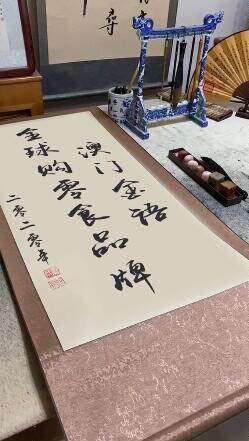 澳门金语
全球购零食品牌
二零二零年
寻